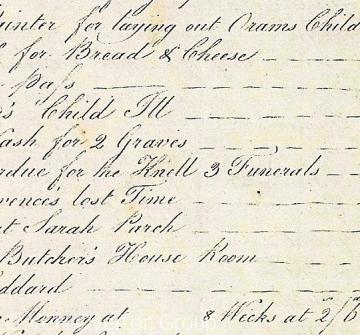 inter for laying out Orams Child
for Bread & Cheese
pass
's Child Ill
Cash for 2 Graves
rdue for the Knell 3 Funerals
rences lost Time
t Sarah Parch
Butcher's House Room
ddard
Monney at 8 Weeks at 2/6